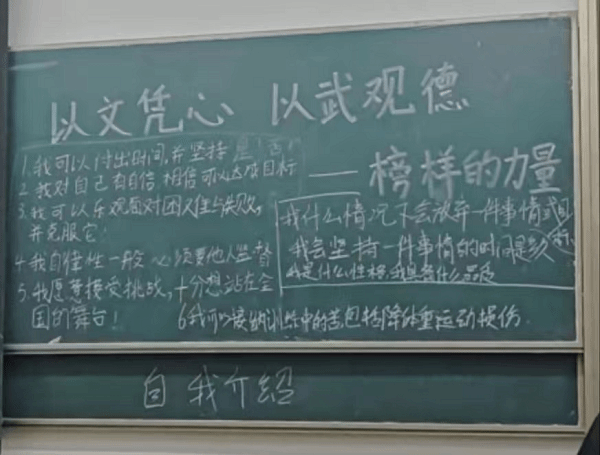 以文凭心 以武观德
——榜样的力量
1.我可以付出时间,并坚持 是 否
2.我对自己有自信 相信可以达成目标
3.我可以乐观面对困难与失败,
并克服它!
4.我自律性一般 必须要他人监督
5.我愿意接受挑战,十分想站在全
国的舞台!
6.我可以接纳训练中的苦包括降体重运动损伤.
我什么情况下会放弃一件事情或目
我会坚持一件事情的时间是多
我是什么性格,我具备什么品质
自我介绍